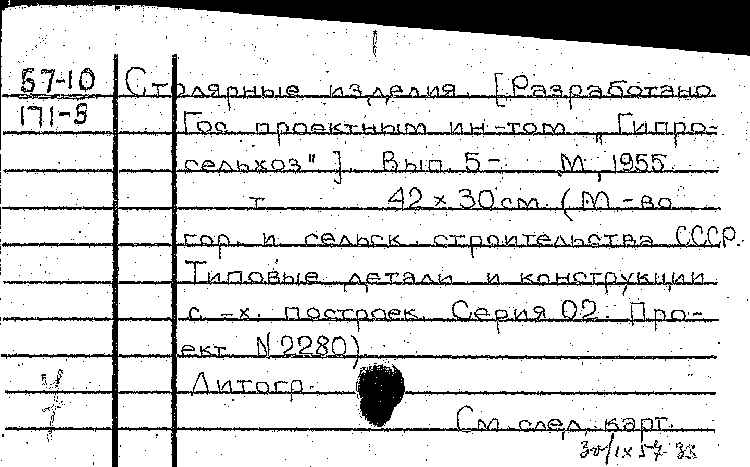 57-10 Столярные изделия. [Разработано
171-8 Гос. проектным ин-том „Гипро-
сельхоз"]. Вып. 5- М., 1955.
т. 42 x 30 см. (М-во
гор. и сельск. строительства СССР.
Типовые детали и конструкции
с.-х. построек. Серия 02. Про-
ект N 2280)
Литогр.
См. след. карт.